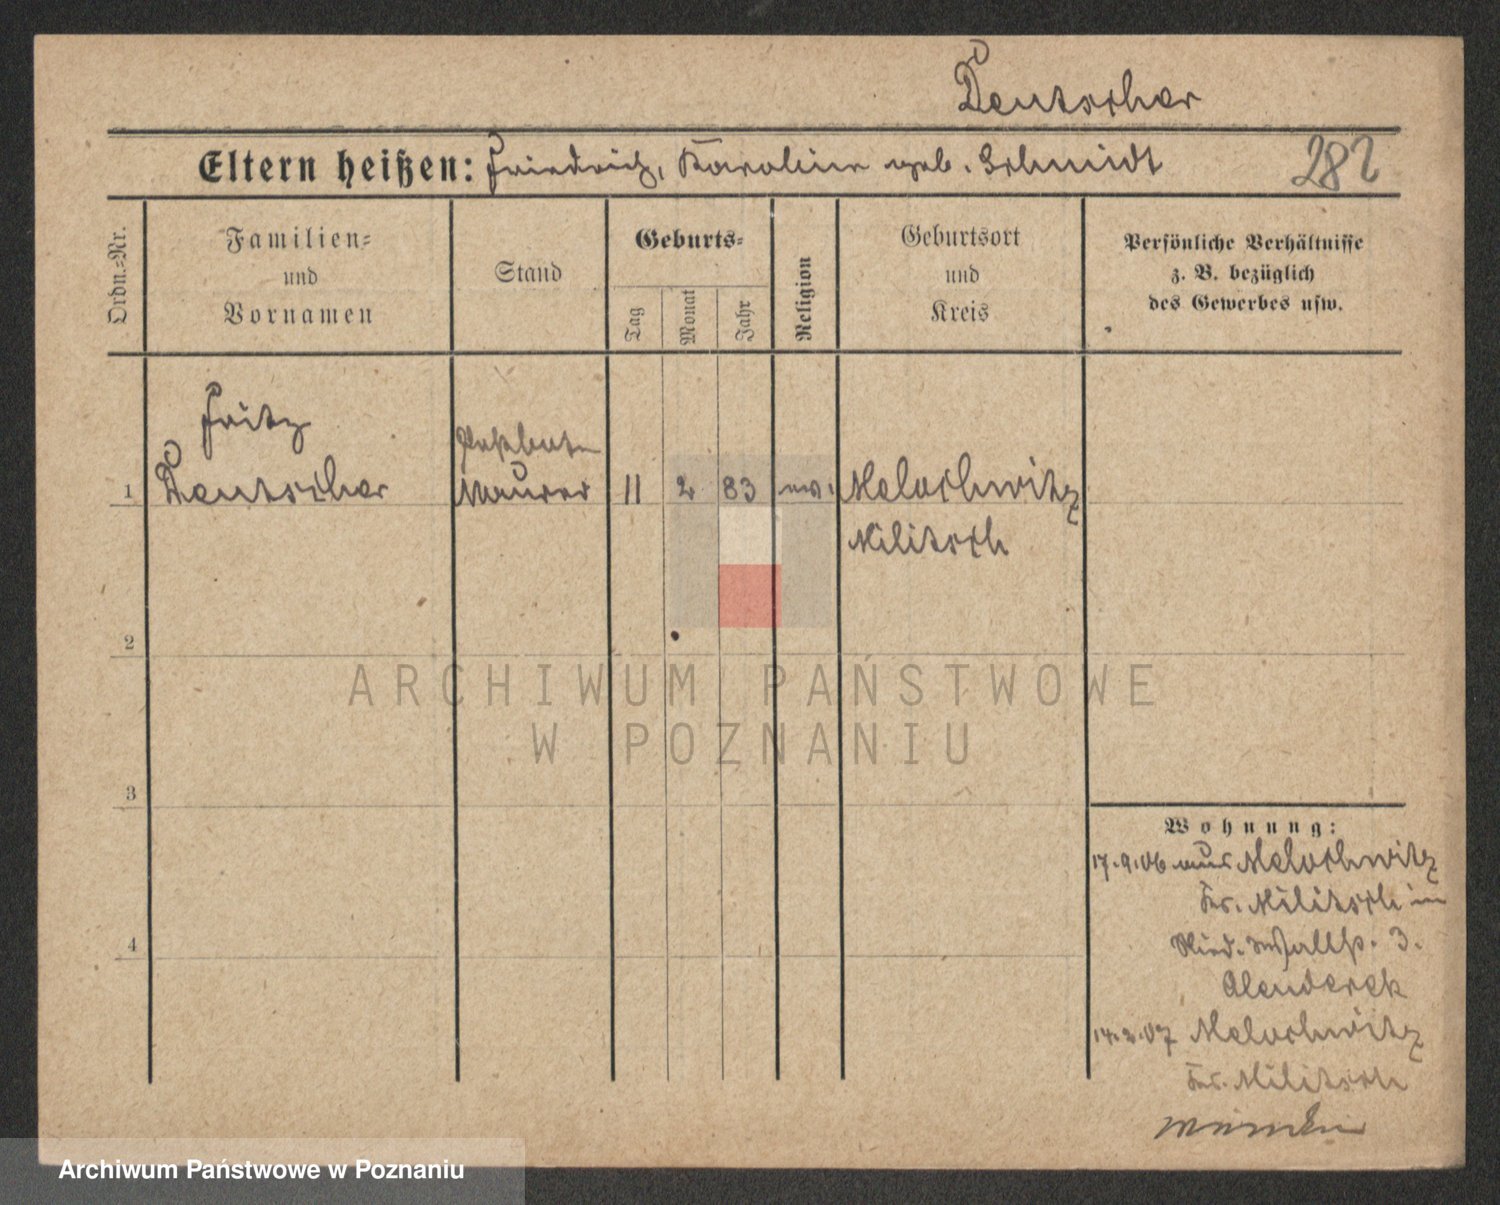 Deutscher
Eltern heißen: Friedrich, Karoline geb. Schmidt
282
Ordn.-Nr.
Familien-
und
Vornamen
Stand
Geburts-
Tag
Monat
Jahr
Religion
Geburtsort
und
Kreis
Persönliche Verhältnisse
z. B. bezüglich
des Gewerbes usw.
Fritz
1 Deutscher
Maurer
11 2 83 ev. Melochwitz
Militsch
2
3
4
Wohnung:
17.9.06 aus Melochwitz
Kr. Militsch in
3.
14.2.07 Melochwitz
Kr. Militsch
ARCHIWUM PAŃSTWOWE
W POZNANIU
Archiwum Państwowe w Poznaniu